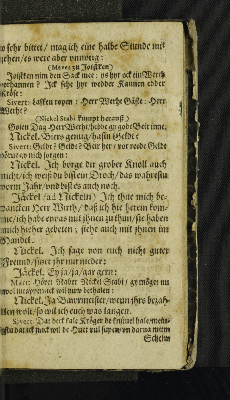 so sehr bittet / mag ich eine halbe Stunde mit
gehen / es were aber unnötig:
(Mares zu Joisten)
Joisten nim den Sack mee: ys hyr ock ein Werth
vorhannen? Ick sehe hyr wedder Kannen edder
Kröse:
Sivert: Lasken ropen: Herr Werthe Gäste: Herr
Werthe?
(Nickel Stabl kumpt heraus)
Goien Dag Herr Werth / hebbe gy gode Beir inne,
Nickel. Biers genug / hastu Geldt?
Sivert: Geldt? Geldt? Beir her / vor Geldt
nich sorgen:
Nickel. Ich borge dir grober Knoll auch
nicht / ich weiß du bist ein Droch / das wahrestu
vorm Jahr / und bist es auch noch.
Jäckel (ad Nickeln) Ich thue mich be-
dancken Herr Wirth / daß ich hie herein kom-
me / ich habe etwas mit jhnen zu thun / sie haben
mich hieher gebeten; siehe auch mit jhnen im
Handel.
Nickel. Ich sage von euch nicht guter
Freund / sitzet jhr nur nieder:
Jäckel. Ey ja / ja / gar gern:
Mars: Höret Naber Nickel Stabl / gy möget nu
wol
Nickel. Ja Bawrmeister / wenn jhrs bezah-
len wolt / so wil ich euch was langen.
Sivert: Dat
Schelm